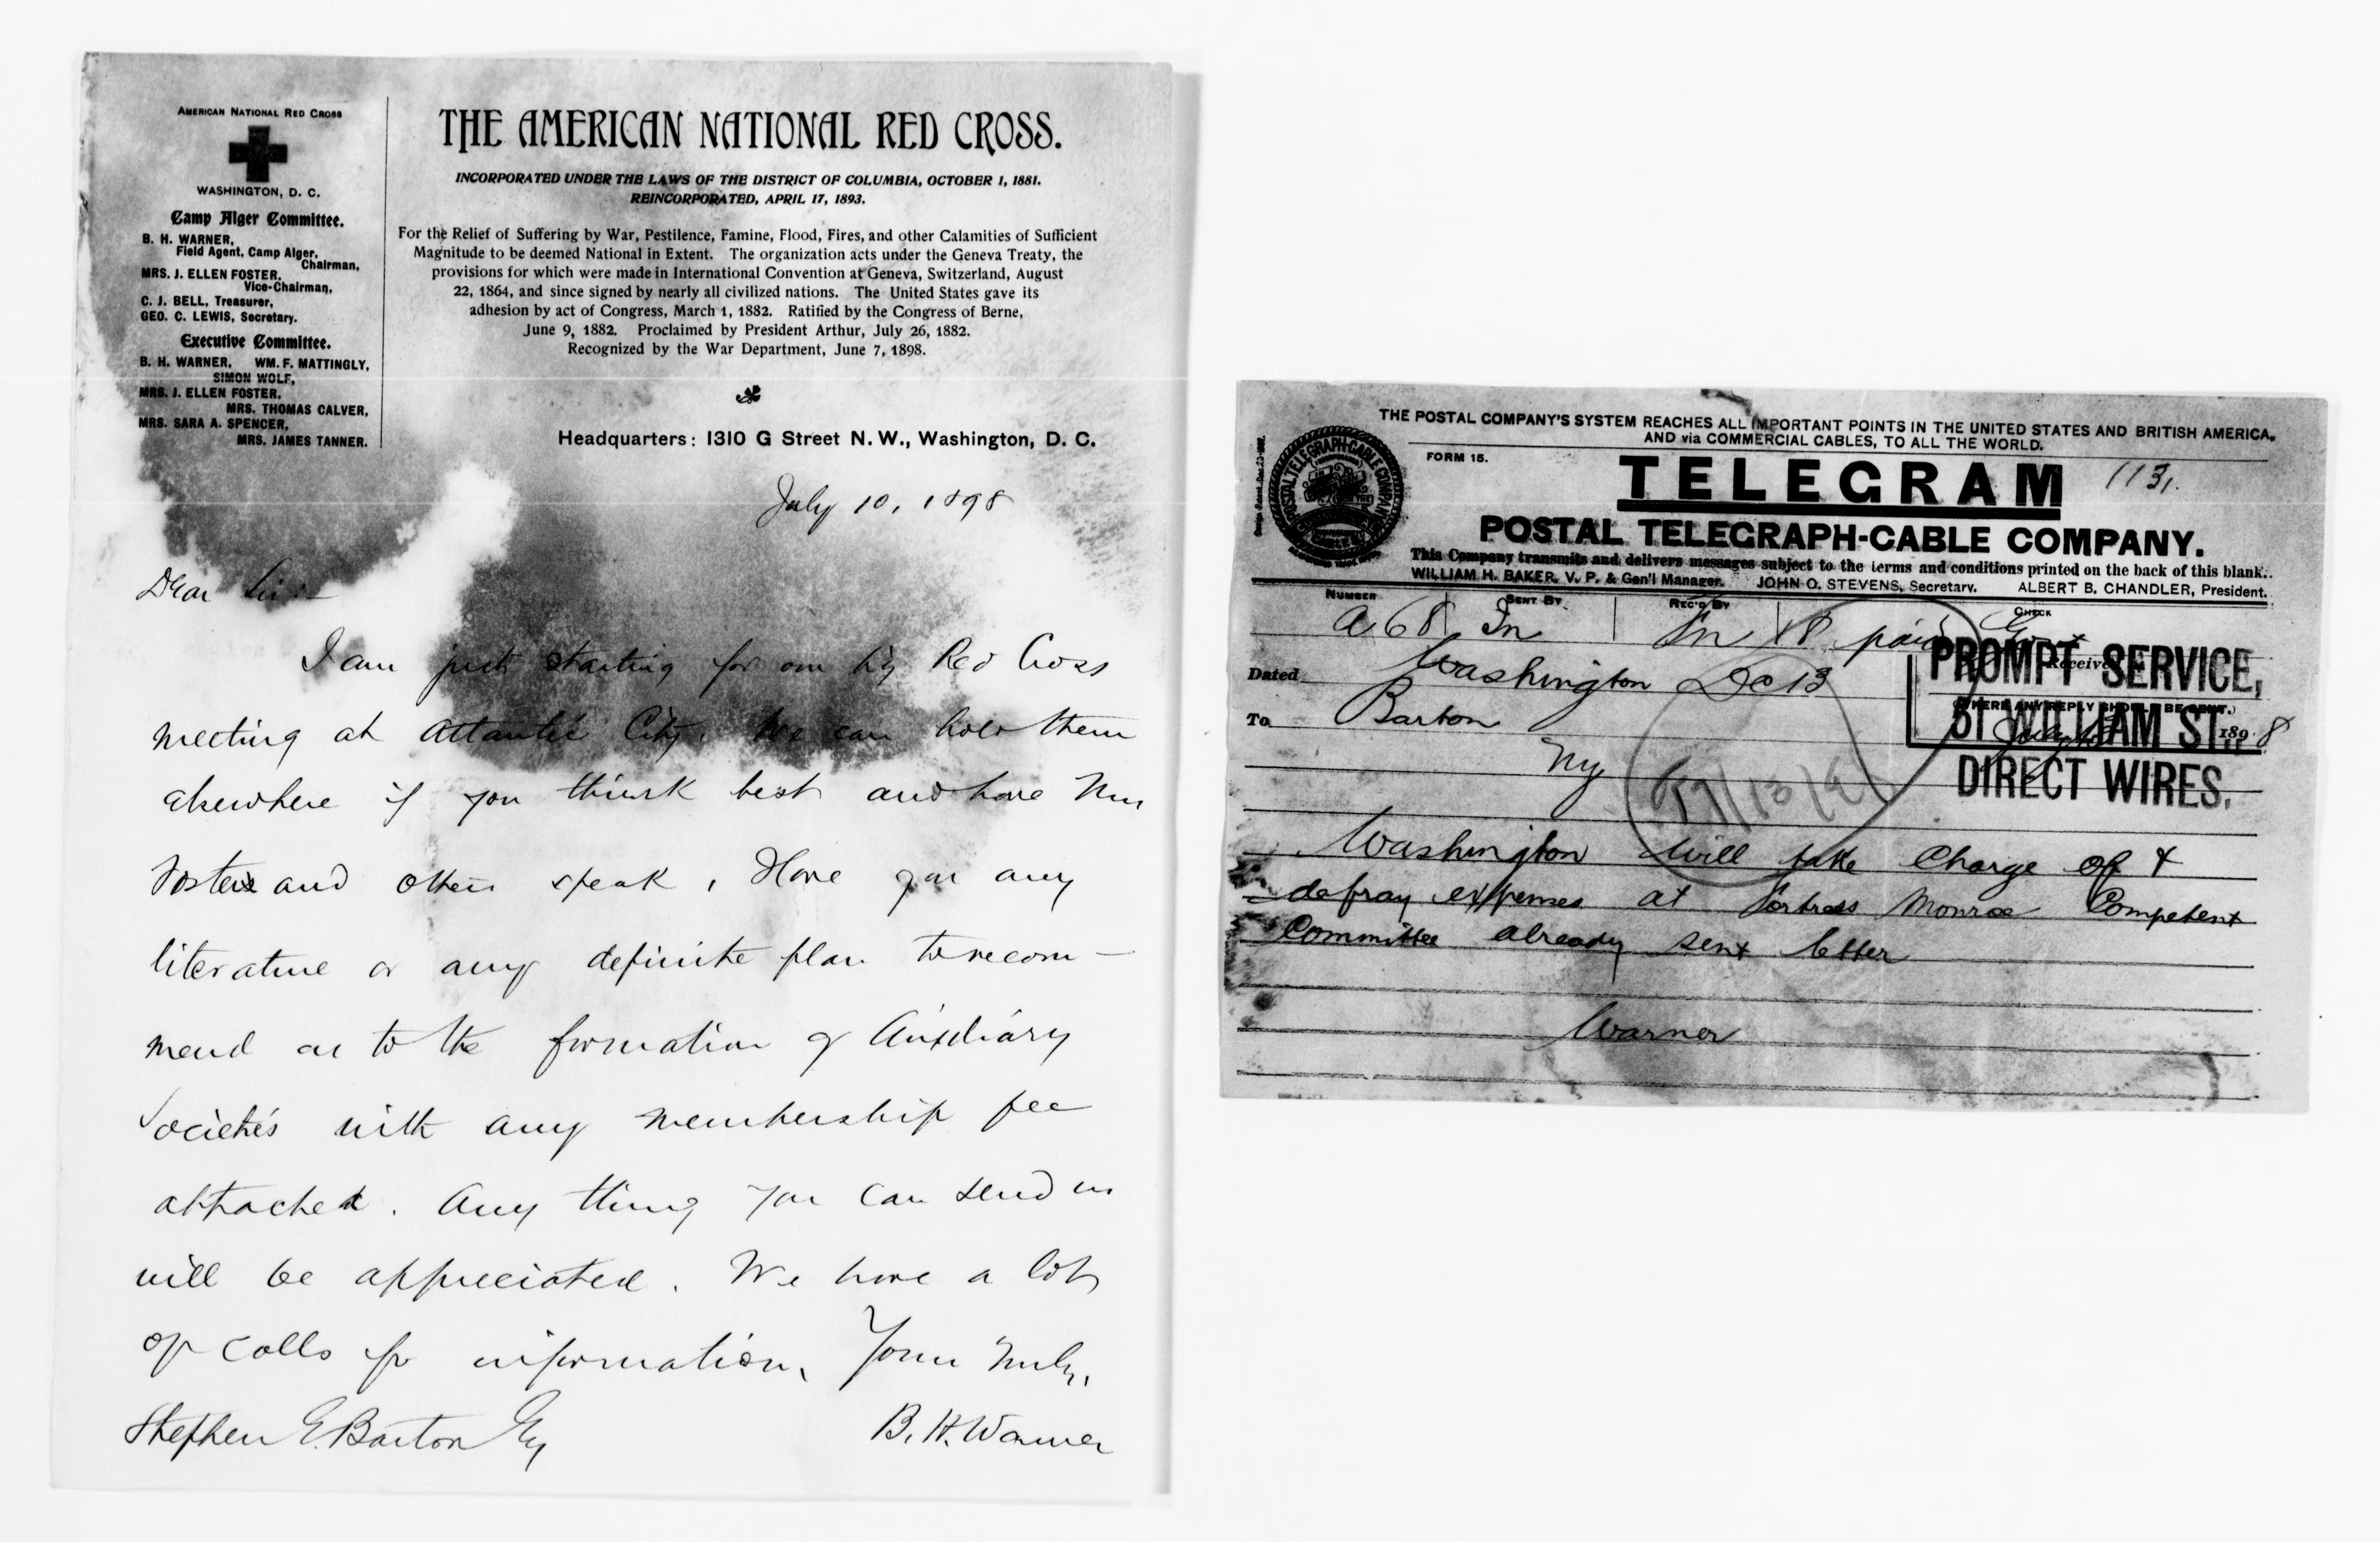 AMERICAN NATIONAL RED CROSS
WASHINGTON, D. C.
Camp Alger Committee.
B. H. WARNER,
Field Agent, Camp Alger,
Chairman,
MRS. J. ELLEN FOSTER,
Vice-Chairman,
C. J. BELL, Treasurer,
GEO. C. LEWIS, Secretary.
Executive Committee.
B. H. WARNER, WM. F. MATTINGLY,
SIMON WOLF,
MRS. J. ELLEN FOSTER,
MRS. THOMAS CALVER,
MRS. SARA A. SPENCER,
MRS. JAMES TANNER.
THE AMERICAN NATIONAL RED CROSS.
INCORPORATED UNDER THE LAWS OF THE DISTRICT OF COLUMBIA, OCTOBER 1, 1881.
REINCORPORATED, APRIL 17, 1893.
For the Relief of Suffering by War, Pestilence, Famine, Flood, Fires, and other Calamities of Sufficient
Magnitude to be deemed National in Extent. The organization acts under the Geneva Treaty, the
provisions for which were made in International Convention at Geneva, Switzerland, August
22, 1864, and since signed by nearly all civilized nations. The United States gave its
adhesion by act of Congress, March 1, 1882. Ratified by the Congress of Berne,
June 9, 1882. Proclaimed by President Arthur, July 26, 1882.
Recognized by the War Department, June 7, 1898.
Headquarters: 1310 G Street N. W., Washington, D. C.
July 10, 1898
Dear Sir:-
I am just starting for our big Red Cross
meeting at Atlantic City. We can hold them
elsewhere if you think best and have Mrs
Foster and others speak. Have you any
literature or any definite plan to recom-
mend as to the formation of Auxiliary
Societies with any membership fee
attached. Any thing you can send us
will be appreciated. We have a lot
of calls for information. Yours truly,
Stephen E. Barton Esq B. H. Warner
THE POSTAL COMPANY'S SYSTEM REACHES ALL IMPORTANT POINTS IN THE UNITED STATES AND BRITISH AMERICA,
AND via COMMERCIAL CABLES, TO ALL THE WORLD.
FORM 15.
TELEGRAM 113,
POSTAL TELEGRAPH-CABLE COMPANY.
This Company transmits and delivers messages subject to the terms and conditions printed on the back of this blank.
WILLIAM H. BAKER, V. P. & Gen'l Manager. JOHN O. STEVENS, Secretary. ALBERT B. CHANDLER, President.
NUMBER SENT BY REC'D BY CHECK
a 68 18 paid
Dated Washington DC 13
To Barton
Ny
PROMPT SERVICE,
51 WILLIAM ST.,
DIRECT WIRES.
1898
Washington will take charge of &
defray expenses at Fortress Monroe Competent
Committee already sent letter
Warner